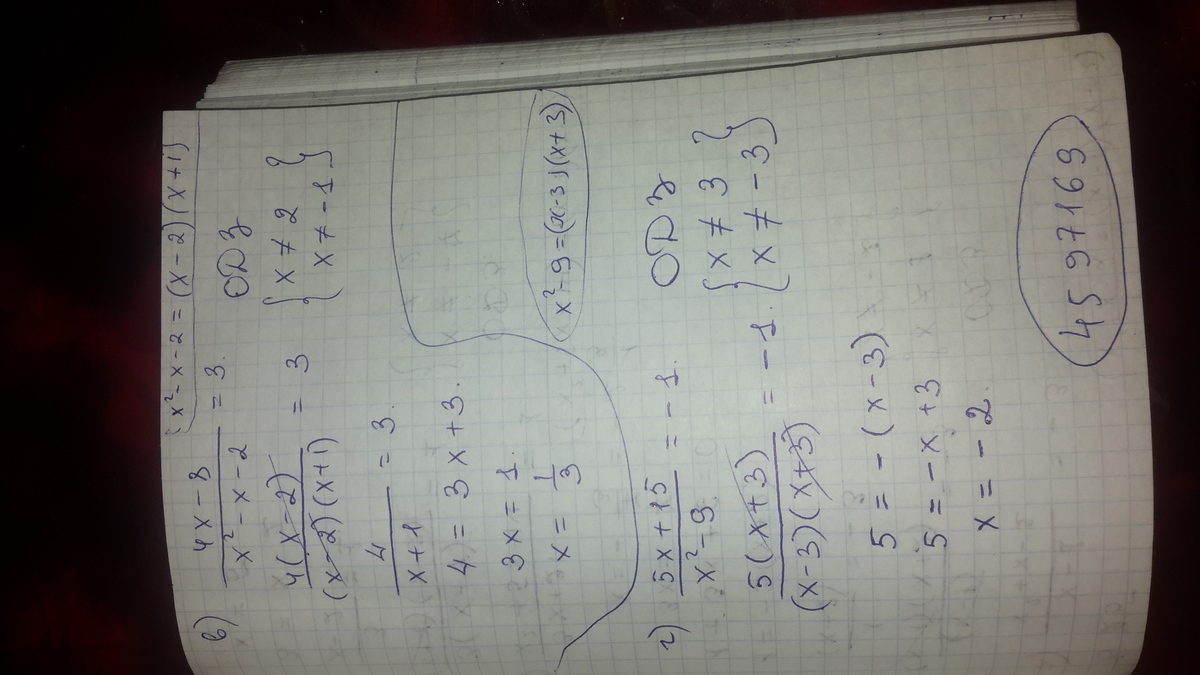 x² - x - 2 = (x - 2)(x + 1)
в) (4x - 8)/(x² - x - 2) = 3.
ОДЗ
4(x - 2)/((x - 2)(x + 1)) = 3
{x ≠ 2
x ≠ -1}
4/(x + 1) = 3.
4 = 3x + 3.
3x = 1.
x = 1/3
x² - 9 = (x - 3)(x + 3)
г) (5x + 15)/(x² - 9) = -1.
ОДЗ
5(x + 3)/((x - 3)(x + 3)) = -1.
{x ≠ 3
x ≠ -3}
5 = -(x - 3)
5 = -x + 3
x = -2.
4597169